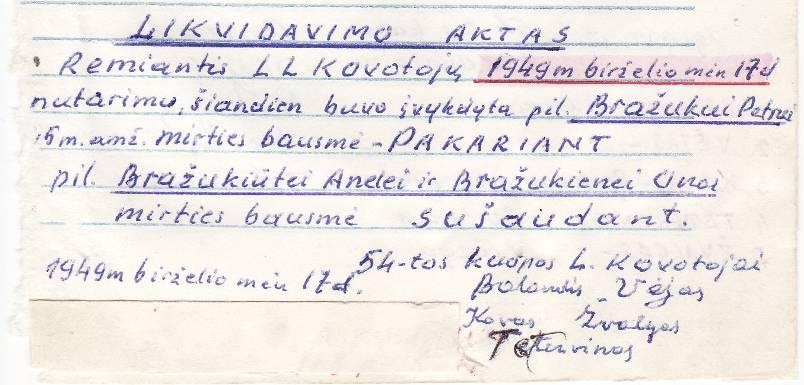 LIKVIDAVIMO AKTAS
Remiantis LL Kovotojų 1949m birželio mėn 17d
nutarimu, šiandien buvo įvykdyta pil. Bražukui Petrui
15 m. amž. mirties bausmė - PAKARIANT
pil. Bražukiūtei Anelei ir Bražukienei Onai
mirties bausmė sušaudant.
1949m birželio mėn 17d. 54-tos kuopos L. Kovotojai
Balandis Vėjas
Kovas Žvalgas
Tetervinas